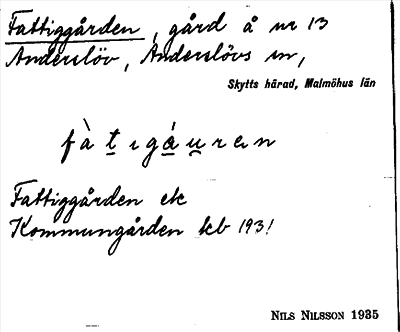 Fattiggården, gård å nr 13
Anderslöv, Anderslövs sn,
Skytts härad, Malmöhus län
fà t ı g á u r e n
Fattiggården ek
Kommungården kb 1931
NILS NILSSON 1935